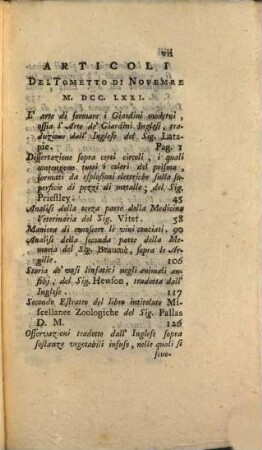 vii
ARTICOLI
DEL TOMETTO DI NOVEMBRE
M. DCC. LXXI.
L' arte di formare i Giardini moderni,
ossia l' Arte de' Giardini Inglesi, tra-
duzione dall' Inglese del Sig. Lata-
pie. Pag. 1
Dissertazione sopra certi circoli, i quali
contengono tutti i colori del prisma,
formati da esplosioni elettriche sulla su-
perficie di pezzi di metallo; del Sig.
Priestley. 45
Analisi della terza parte della Medicina
Veterinaria del Sig. Vitet. 58
Maniera di conoscere li vini conciati. 99
Analisi della seconda parte della Me-
moria del Sig. Beaumè, sopra le Ar-
gille. 106
Storia de' vasi linfatici negli animali an-
fibj, del Sig. Hewson, tradotta dall'
Inglese. 117
Secondo Estratto del libro intitolato Mi-
scellanee Zoologiche del Sig. Pallas
D. M. 126
Osservazioni tradotte dall' Inglese sopra
sostanze vegetabili infuse, nelle quali si
scuo-